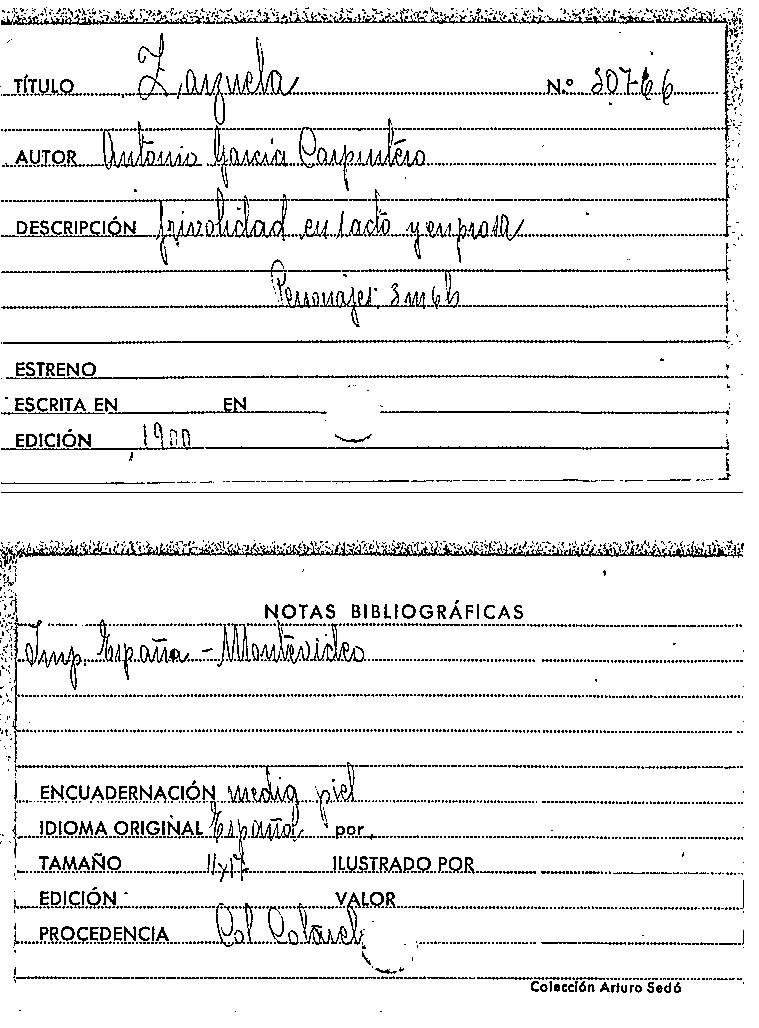 TÍTULO Zarzuela N.º 30766
AUTOR Antonio García Carpintero
DESCRIPCIÓN frivolidad en 1 acto y en prosa
Personajes: 3 m 6 h
ESTRENO
ESCRITA EN EN
EDICIÓN 1900
NOTAS BIBLIOGRÁFICAS
Imp. España - Montevideo
ENCUADERNACIÓN media piel
IDIOMA ORIGINAL Español por
TAMAÑO 11x17 ILUSTRADO POR
EDICIÓN VALOR
PROCEDENCIA Col
Colección Arturo Sedó